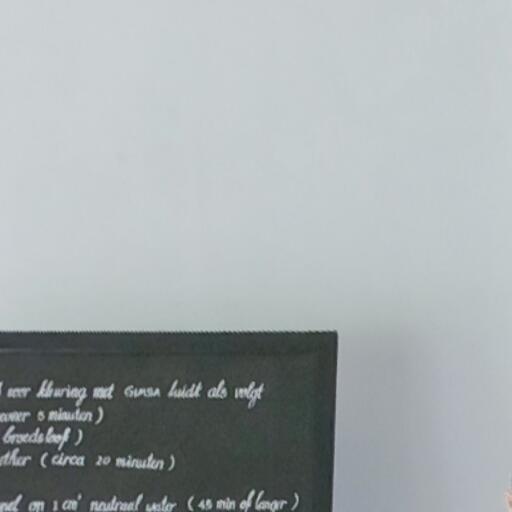 voor kleuring met GIEMSA luidt als volgt
5 minuten )
ether ( circa 20 minuten )
op 1 cm³ neutraal water ( 45 min of langer )